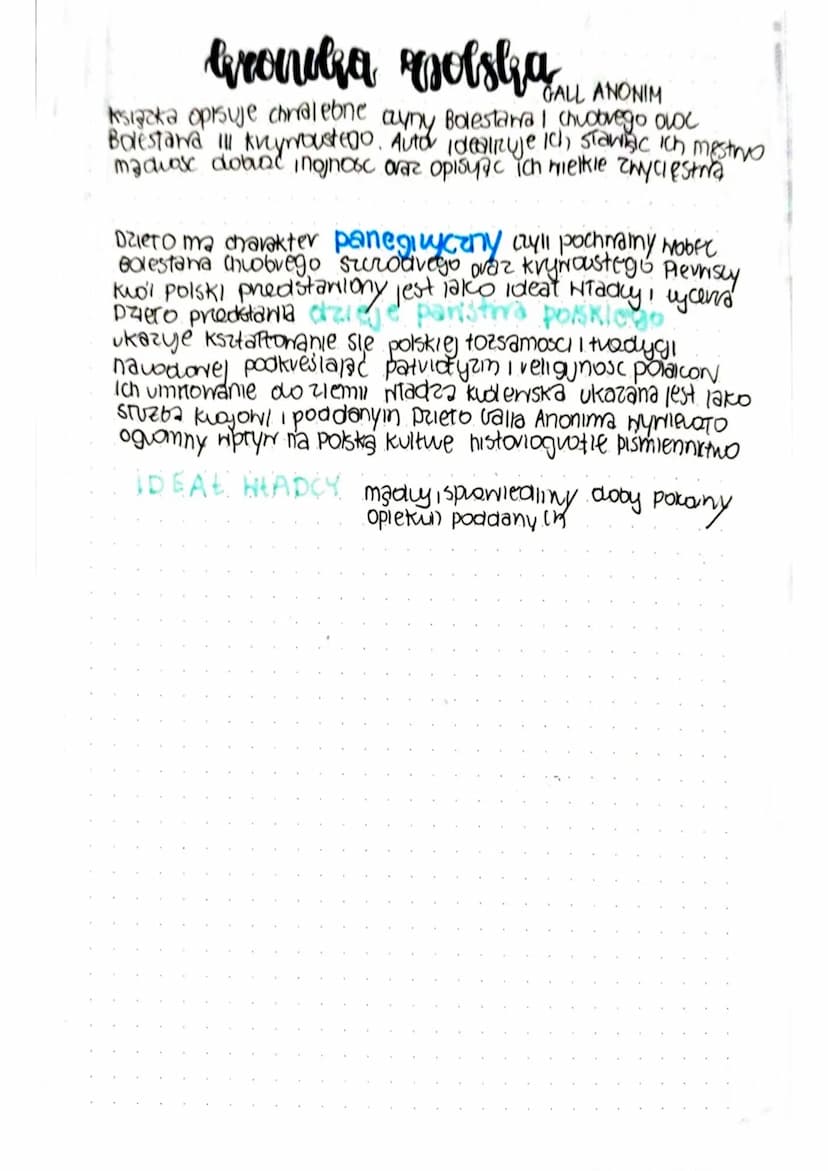 kronika polska
GALL ANONIM
książka opisuje chwalebne czyny Bolesława I Chrobrego oraz
Bolesława III Krzywoustego. Autor idealizuje ich, sławiąc ich męstwo
mądrość dobroć inojność oraz opisując ich wielkie zwycięstwa
Dzieło ma charakter panegiryczny czyli pochwalny wobec
Bolesława Chrobrego szczodrego oraz krzywoustego Pierwszy
król polski przedstawiony jest jako ideał władcy i rycerza
Dzieło przedstawia dzieje państwa polskiego
ukazuje kształtowanie się polskiej tożsamości i tradycji
narodowej podkreślając patriotyzm i religijność polaków
ich umiłowanie do ziemi władza królewska ukazana jest jako
służba krajowi i poddanym Dzieło Galla Anonima wywierało
ogromny wpływ na polską kulturę historiografię piśmiennictwo
IDEAŁ WŁADCY mądry, sprawiedliwy dobry pokorny
opiekun poddanych